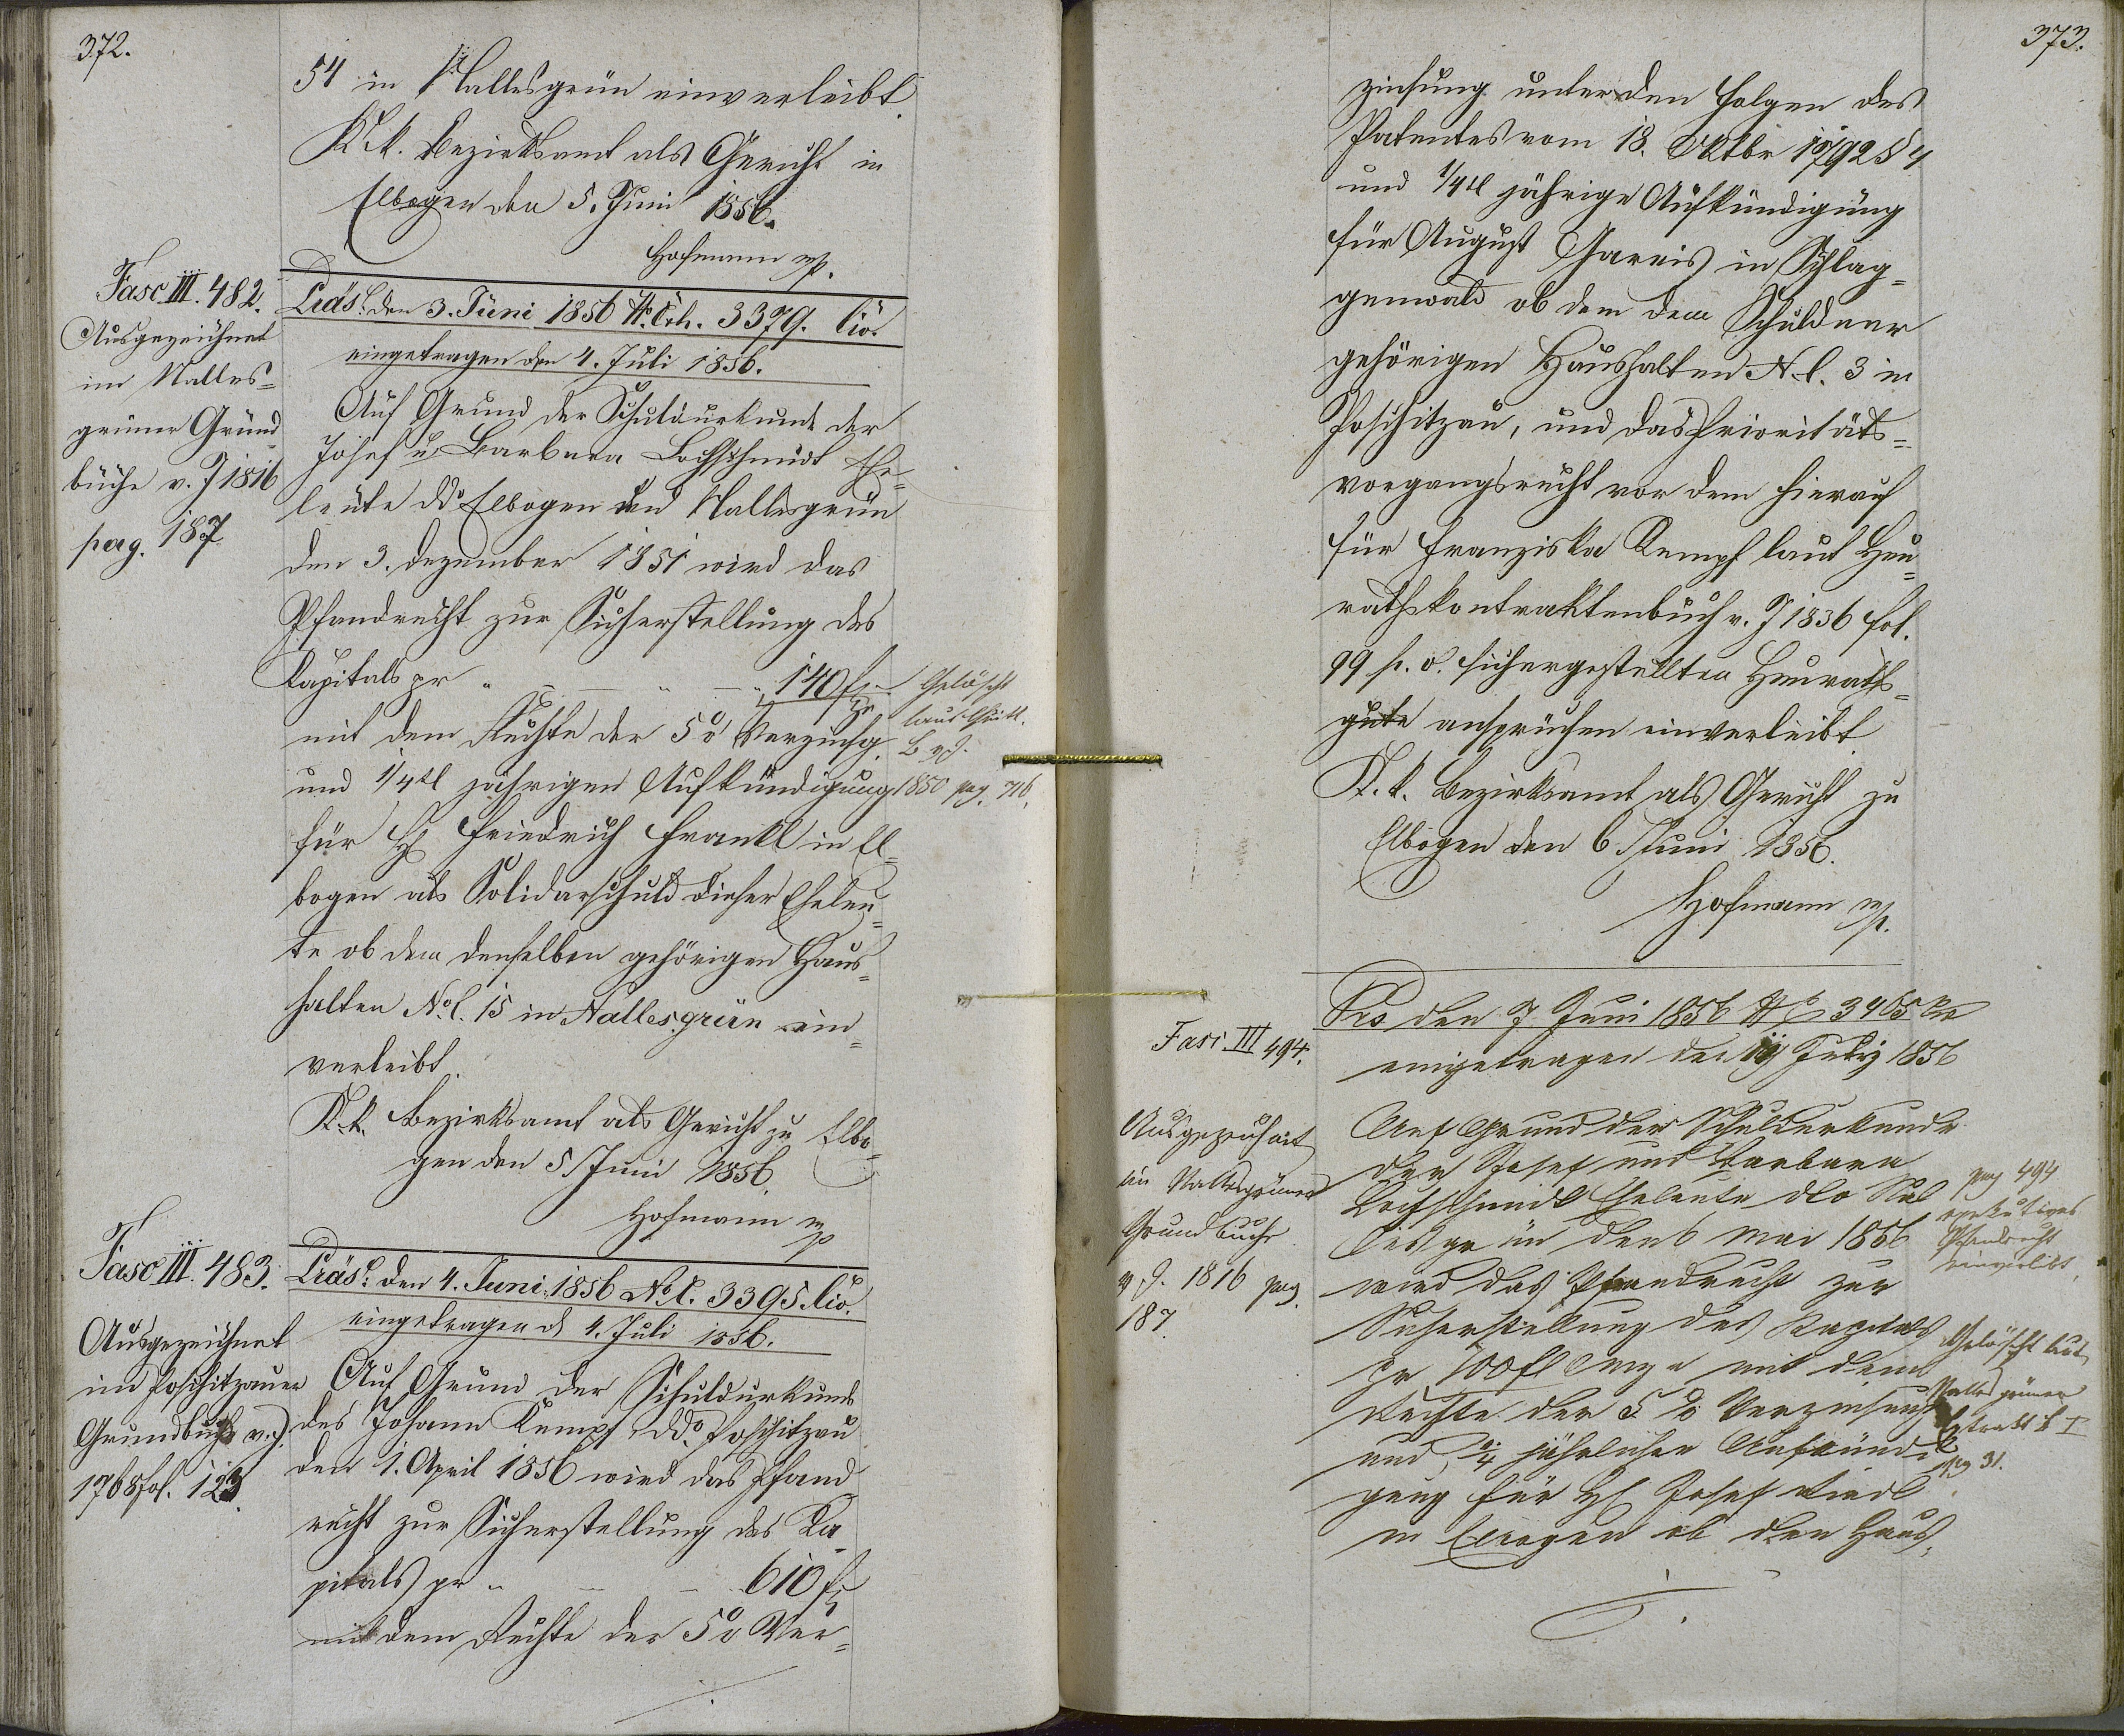 372.
54 in Nallesgrün einverleibt
K. k. Bezirksamt als Gericht in
Elbogen den 5. Juni 1856.
Hofmann mp.
Fasc. III. 482.
Ausgezeichnet
im Nalles-
grüner Grund
buche v. J 1816
pag. 187
Präs. den 3. Juni 1856 3379. Civ.
eingetragen den 4. Juli 1856.
Auf Grund der Schuldurkunde der
Josef u. Barbara Lochschmidt Ehe-
leute ddo Elbogen und Nallesgrün
den 3. Dezember 1851 wird das
Pfandrecht zur Sicherstellung des
Kapitals pr 140 f
mit dem Rechte der 5% Verzinsg.
und 1/4tl jährigen Aufkündigung
für H Friedrich Frankl in El-
bogen als Solidarschuld dieser Eheleu-
te ob dem denselben gehörigen Haus-
halten No C. 15 in Nallesgrün ein-
verleibt.
K. k. Bezirksamt als Gericht zu Elbo-
gen den 5 Juni 1856.
Hofmann mp
Gelöscht
laut
B v J.
1850 pag. 716.
Fasc III. 483.
Ausgezeichnet
im Poschitzauer
Grundbuch v. J.
1768 fol. 123.
Präs. den 4. Juni 1856 No C. 3395 Civ.
eingetragen d 4. Juli 1856.
Auf Grund der Schuldurkunde
des Johann Kempf ddo. Poschitzau
den 1. April 1856 wird das Pfand
recht zur Sicherstellung des Ka-
pitals pr 610 f
mit dem Rechte der 5% Ver-
373.
zinsung unter den Folgen des
Patentes vom 18. Oktbr 1792 § 4
und 1/4tl jährige Aufkündigung
für August Gareis in Schlag-
genwald ob dem dem Schuldner
gehörigen Haushalten N C. 3 in
Poschitzau, und das Prioritäts-
vorgangsrecht vor dem hierauf
für Franziska Kempf laut Heu-
rathskontraktenbuch v. J 1836 fol.
99 p. v. sichergestellten Heuraths-
gute ansprüchen einverleibt
K. k. Bezirksamt als Gericht zu
Elbogen den 6. Juni 1856.
Hofmann mp.
Fasc III 494.
Ausgezeichnet
im Nallesgrüner
Grundbuche
v J. 1816 pag.
187.
Prs den 7 Juni 1856 3465
eingetragen den July 1856
Auf Grund der Schuldurkunde
der Josef und Barbara
Lochschmidt Eheleute dto Nal
lesgrün den 6 Mai 1856
wird das Pfandrecht zur
Sicherstellung des Kapitals
pr 100 fl mit dem
Rechte der 5 % Verzinsung
und 1/4 jährlichen Aufkündi
gung für H Josef
in Elbogen ob den Haus-
pag 494
exekutives
Pfandrecht
einverleibt.
Gelöscht laut
Nallesgrüner
Extrakt B I
pg 31.